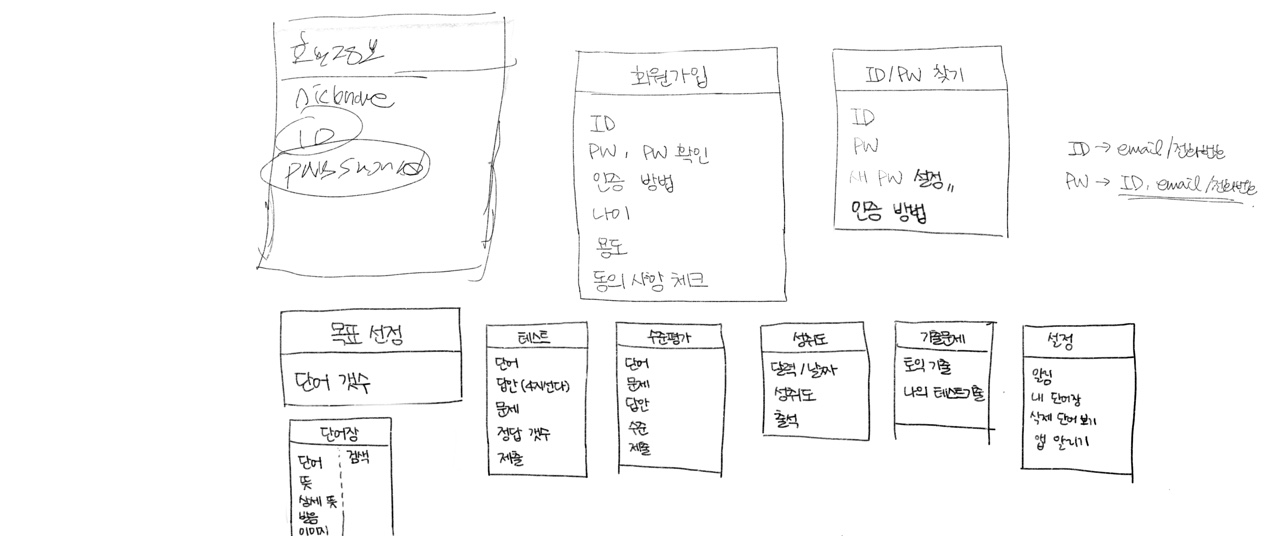 회원정보
Nickname
ID
password
회원가입
ID
PW, PW 확인
인증 방법
나이
용도
동의 사항 체크
ID/PW 찾기
ID
PW
새 PW 설정
인증 방법
ID → email/전화번호
PW → ID, email/전화번호
목표 선정
단어 갯수
테스트
단어
답안 (4지선다)
문제
정답 갯수
제출
수준평가
단어
문제
답안
수준
제출
성취도
달력/날짜
성취도
출석
기출문제
토익 기출
나의 테스트 기출
설정
알림
내 단어장
삭제 단어 보기
앱 알리기
단어장
단어
검색
뜻
상세 뜻
발음
이미지